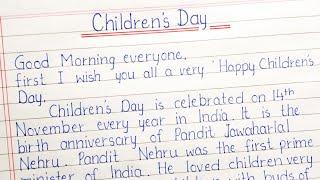 Children's Day
Good Morning everyone.
first I wish you all a very 'Happy Children's
Day.
Children's Day is celebrated on 14th
November every year in India. It is the
birth anniversary of Pandit Jawaharlal
Nehru. Pandit Nehru was the first prime
minister of India. He loved children very
children with buds of